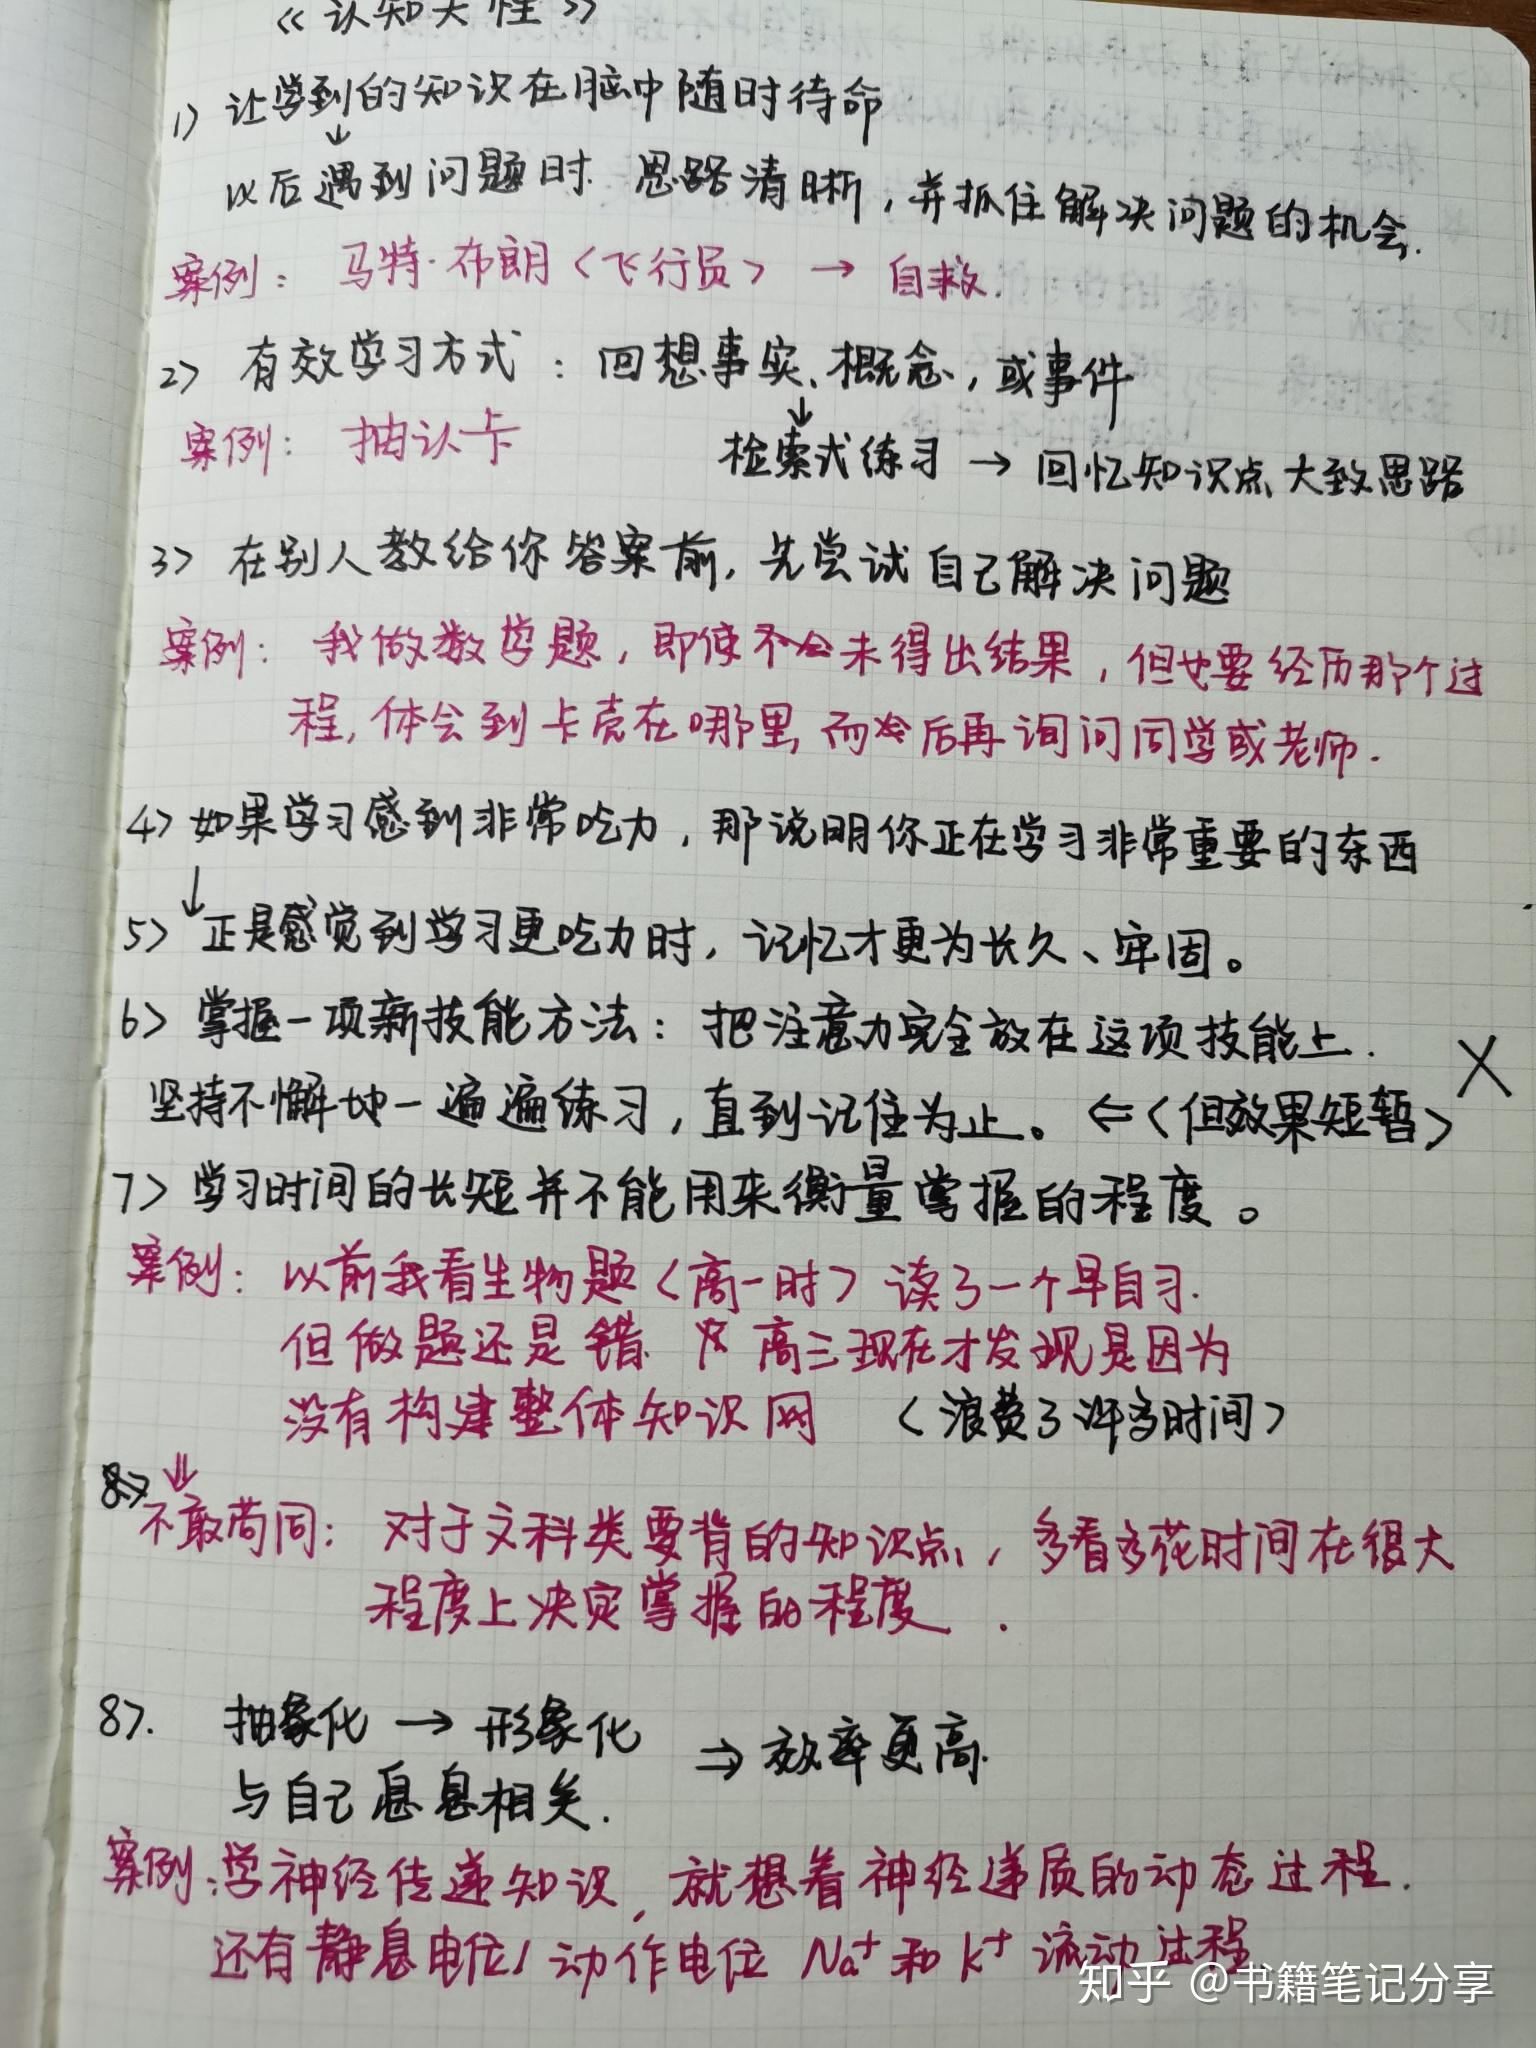 《认知天性》
1> 让学到的知识在脑中随时待命
↓
以后遇到问题时.思路清晰,并抓住解决问题的机会.
案例: 马特·布朗<飞行员> → 自救.
2> 有效学习方式:回想事实、概念,或事件
案例: 抽认卡
↓
检索式练习 → 回忆知识点大致思路
3> 在别人教给你答案前,先尝试自己解决问题
案例: 我做数学题,即使未得出结果,但也要经历那个过
程,体会到卡壳在哪里,而后再询问同学或老师.
4> 如果学习感到非常吃力,那说明你正在学习非常重要的东西
↓
5> 正是感觉到学习更吃力时,记忆才更为长久、牢固。
6> 掌握一项新技能方法:把注意力完全放在这项技能上. X
坚持不懈地一遍遍练习,直到记住为止。 ⇐<但效果短暂>
7> 学习时间的长短并不能用来衡量掌握的程度。
案例: 以前我看生物题<高一时>读了一个早自习.
但做题还是错. 高三现在才发现是因为
没有构建整体知识网 <浪费了许多时间>
8> ⇓
不敢苟同: 对于文科类要背的知识点,多看多花时间在很大
程度上决定掌握的程度.
8>. 抽象化 → 形象化
⇒ 效率更高.
与自己息息相关.
案例:学神经传递知识,就想着神经递质的动态过程.
还有静息电位/动作电位 Na⁺和K⁺流动过程
知乎 @书籍笔记分享